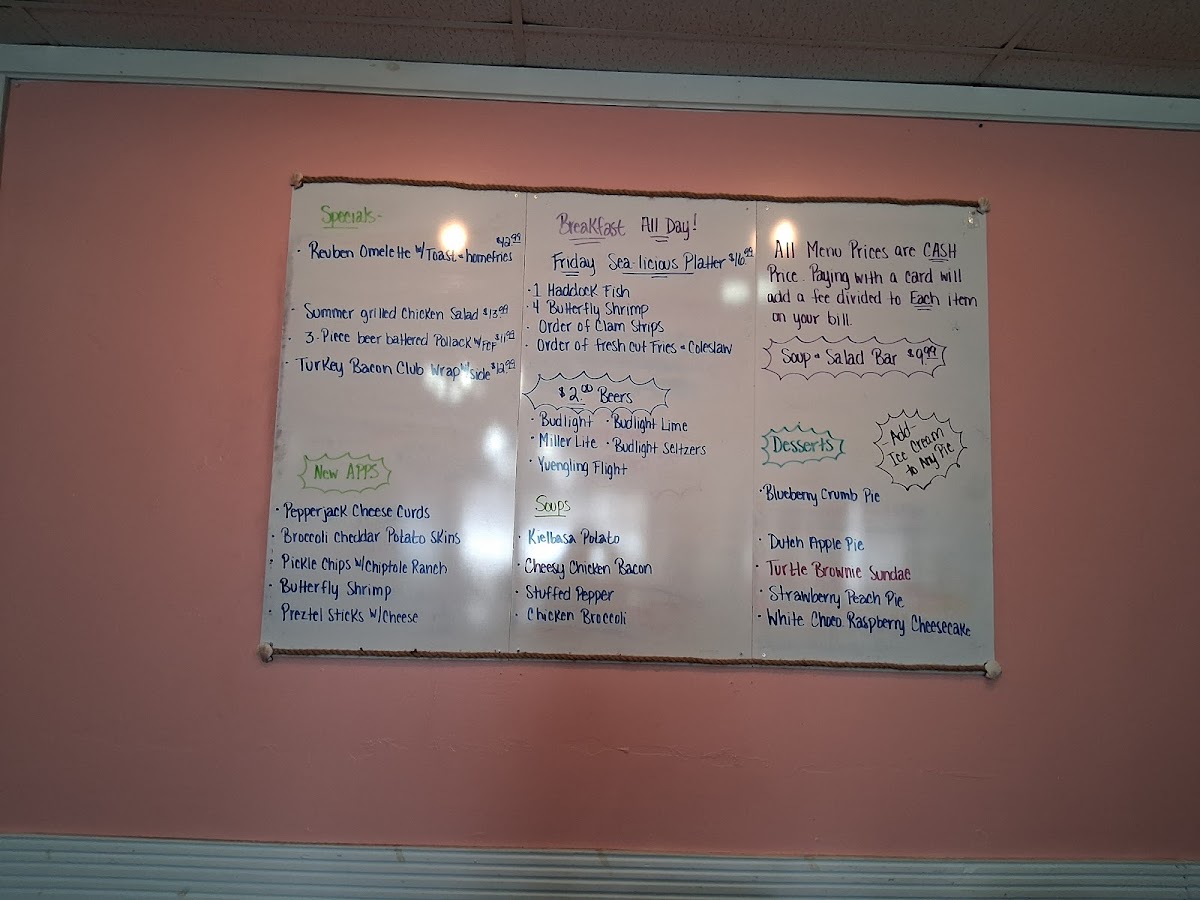 Specials-
• Reuben Omelette w/Toast & homefries $12.99
• Summer grilled Chicken Salad $13.99
• 3-Piece beer battered Pollack w/FCF $11.99
• Turkey Bacon Club Wrap w/side $12.99
New APPS
• Pepperjack Cheese Curds
• Broccoli Cheddar Potato Skins
• Pickle Chips w/Chiptole Ranch
• Butterfly Shrimp
• Preztel Sticks w/Cheese
Breakfast All Day!
Friday Sea-licious Platter $16.99
• 1 Haddock Fish
• 4 Butterfly Shrimp
• Order of Clam Strips
• Order of fresh cut Fries & Coleslaw
$2.00 Beers
• Budlight • Budlight Lime
• Miller Lite • Budlight Seltzers
• Yuengling Flight
Soups
• Kielbasa Potato
• Cheesy Chicken Bacon
• Stuffed Pepper
• Chicken Broccoli
All Menu Prices are CASH
Price. Paying with a card will
add a fee divided to Each item
on your bill.
Soup & Salad Bar $9.99
Desserts
-Add-
Ice Cream
to Any Pie
• Blueberry Crumb Pie
• Dutch Apple Pie
• Turtle Brownie Sundae
• Strawberry Peach Pie
• White Choco. Raspberry Cheesecake